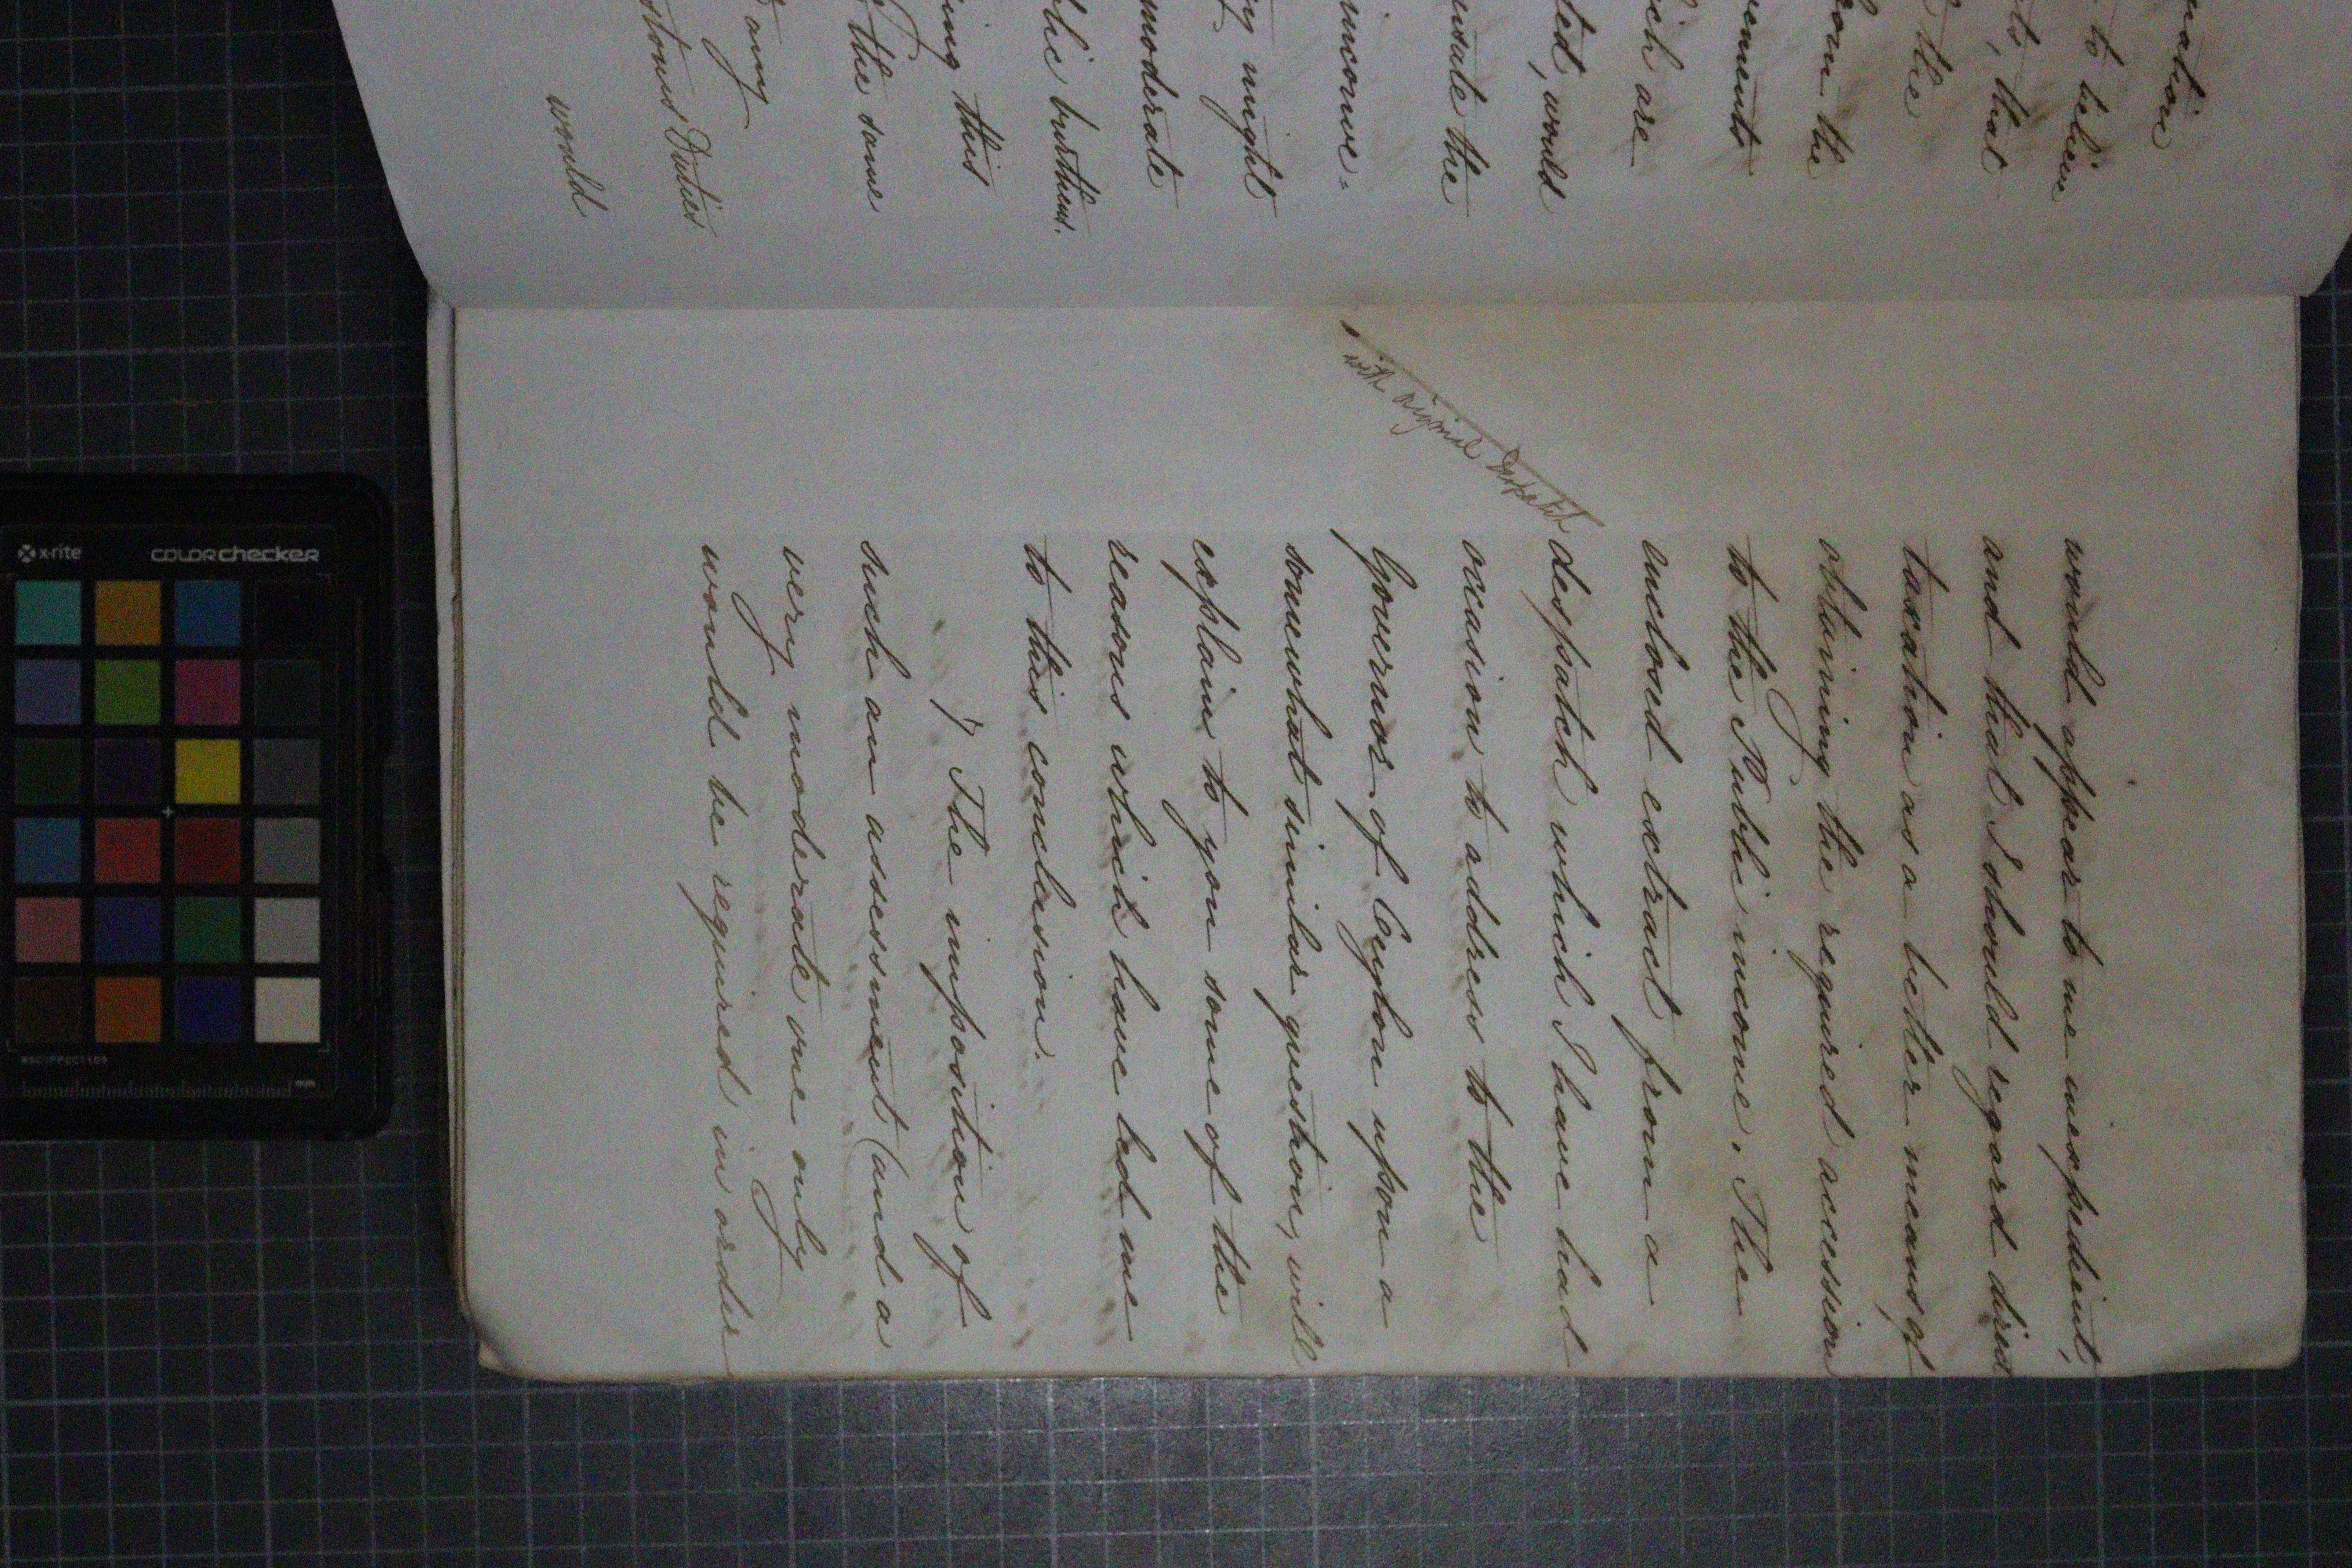 uation
to believe
ts, that
the
from the
ements
ich are
ted, would
nsate the
inconve-
ry might
moderate
blic burthens.
ing this
the some
any
stoms Duties
would
would appear to me inexpedient,
and that I should regard direct
taxation as a better means of
obtaining the required accession
to the Public income. The
enclosed extract from a
despatch which I have had
occasion to address to the
Governor of Ceylon upon a
somewhat similar question, will
explain to you some of the
reasons which have led me
to this conclusion.
7 The imposition of
such an assessment (and a
very moderate one only
would be required in order
with original Despatch
x-rite
colorchecker
mm